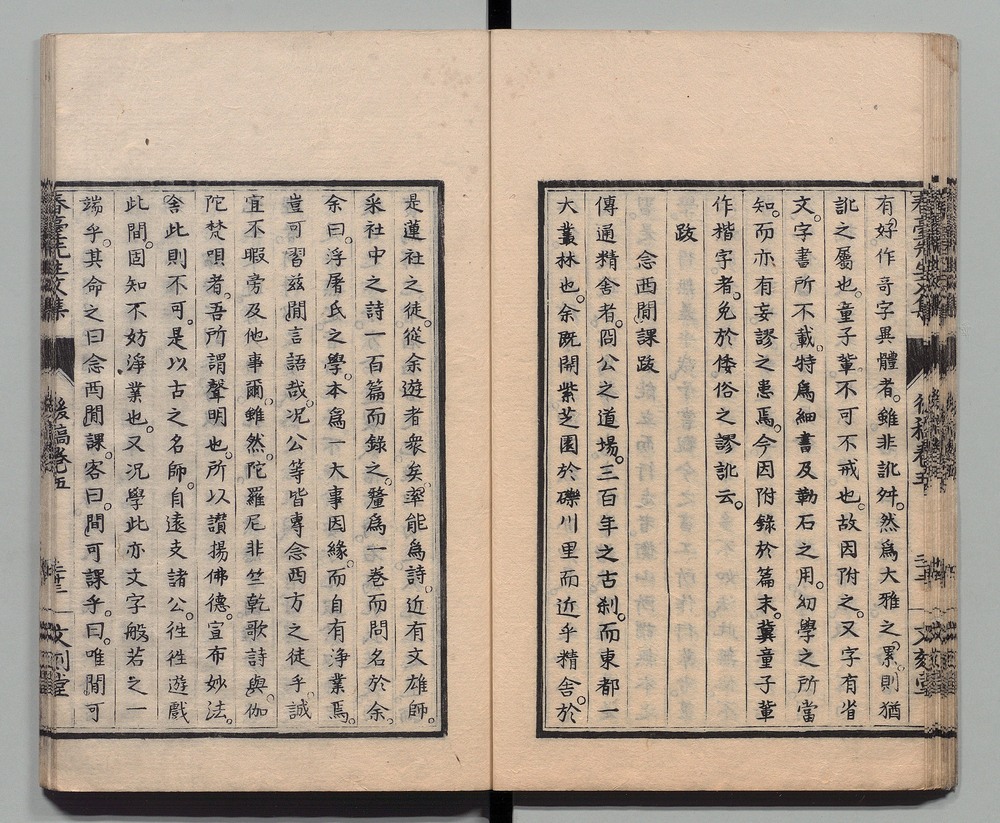 有好作奇字異體者。雖非訛舛。然爲大雅之累。則猶
訛之屬也。童子輩。不可不戒也。故因附之。又字有省
文。字書所不載。特爲細書及勒石之用。幼學之所當
知。而亦有妄謬之患焉。今因附錄於篇末。冀童子輩
作楷字者。免於倭俗之謬訛云。
跋
念西閒課跋
傳通精舍者。冏公之道場。三百年之古刹。而東都一
大叢林也。余既開紫芝園於礫川里而近乎精舍。於
是蓮社之徒。從余遊者衆矣。率能爲詩。近有文雄師。
采社中之詩一百篇而錄之。釐爲一卷而問名於余。
余曰。浮屠氏之學。本爲一大事因緣。而自有浄業焉。
豈可習玆閒言語哉。况公等皆專念西方之徒乎。誠
宜不暇旁及他事爾。雖然。陀羅尼非竺乾歌詩與。伽
陀梵唄者。吾所謂聲明也。所以讃揚佛德。宣布妙法。
舍此則不可。是以古之名師。自遠支諸公。徃徃遊戲
此間。固知不妨淨業也。又况學此亦文字般若之一
端乎。其命之曰念西閒課。客曰。閒可課乎。曰。唯閒可
春臺先生文集
後稿卷五
文刻堂